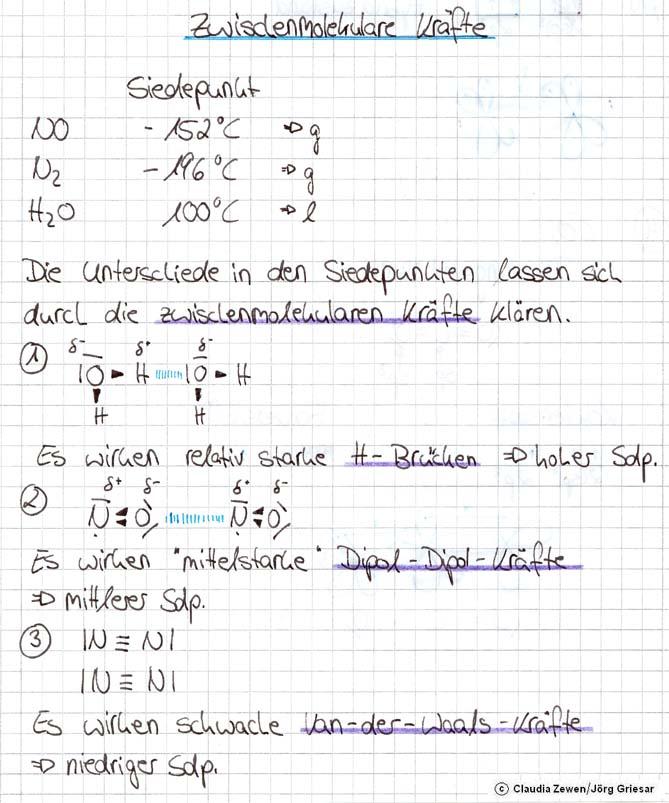 Zwischenmolekulare Kräfte
Siedepunkt
NO -152°C ⇒ g
N₂ -196°C ⇒ g
H₂O 100°C ⇒ l
Die Unterschiede in den Siedepunkten lassen sich
durch die zwischenmolekularen Kräfte klären.
① δ⁻ δ⁺ δ⁻
|O ▸ H |O ▸ H
H H
Es wirken relativ starke H-Brücken ⇒ hoher Sdp.
② δ⁺ δ⁻ δ⁺ δ⁻
N O N O
Es wirken "mittelstarke" Dipol-Dipol-Kräfte
⇒ mittlerer Sdp.
③ |N≡N|
|N≡N|
Es wirken schwache Van-der-Waals-Kräfte
⇒ niedriger Sdp.
© Claudia Zewen/Jörg Griesar